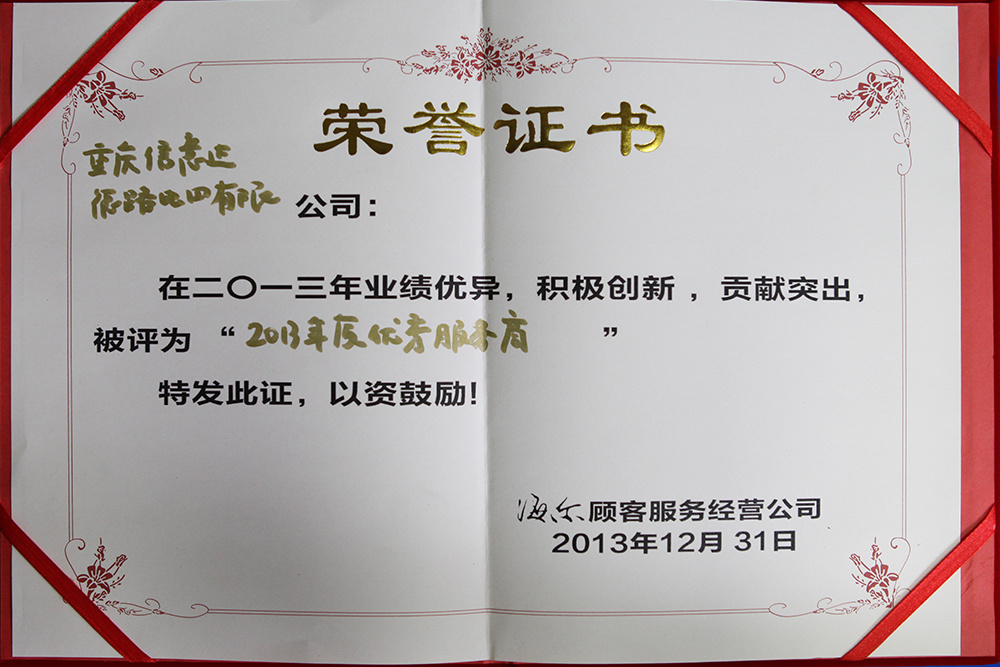 荣誉证书
重庆信志
有限公司：
在二〇一三年业绩优异，积极创新，贡献突出，
被评为“2013年度优秀服务商”
特发此证，以资鼓励！
海尔顾客服务经营公司
2013年12月31日